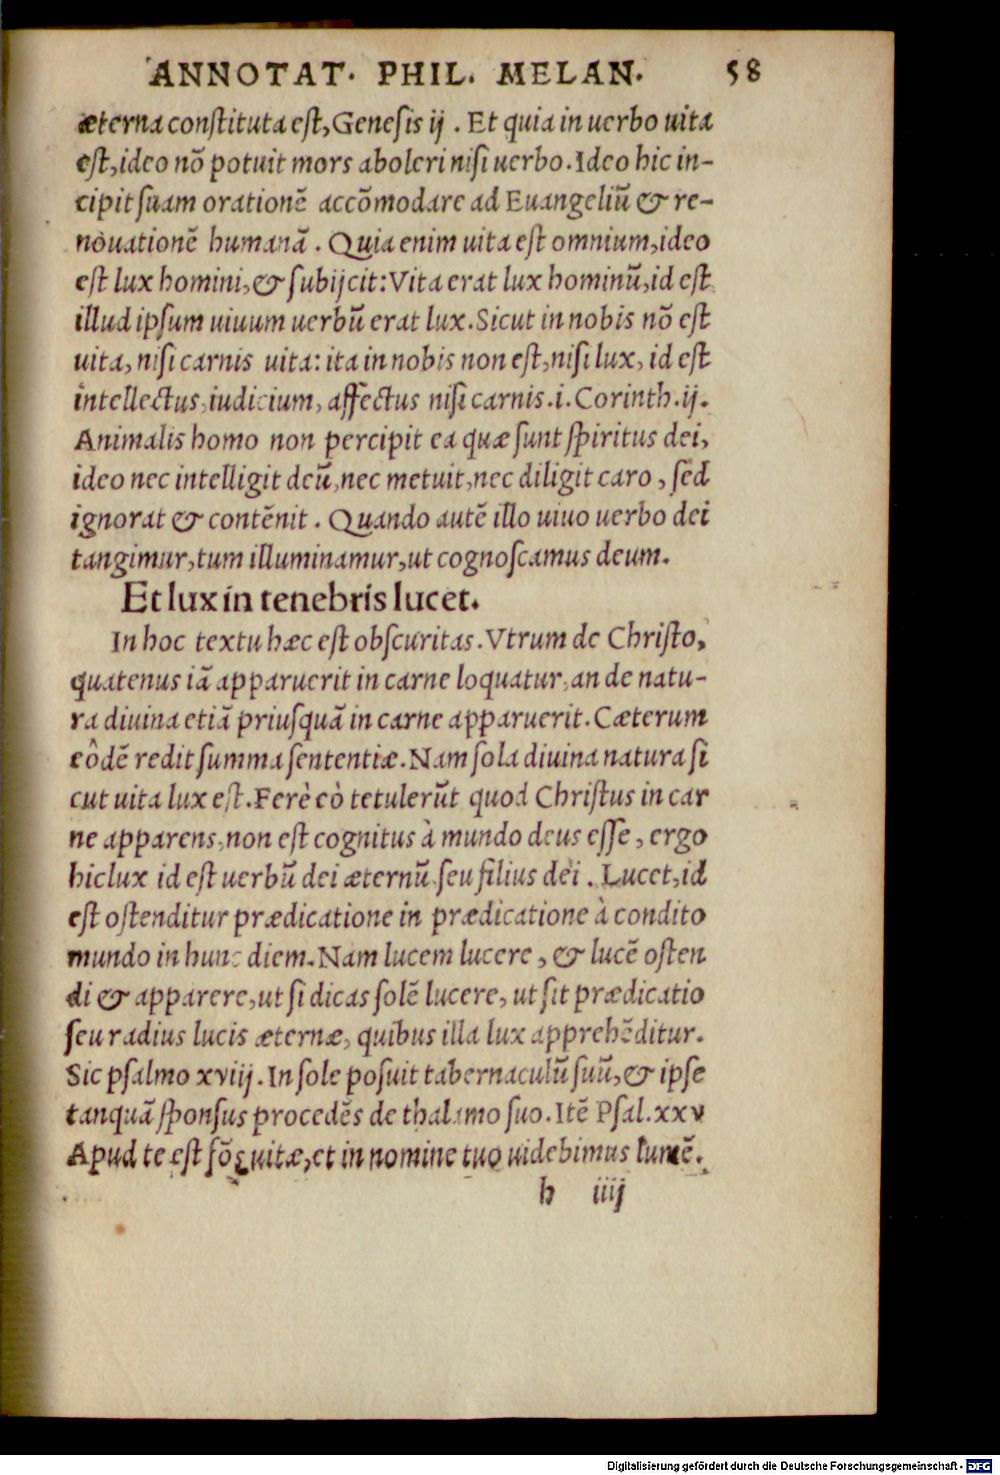 ANNOTAT. PHIL. MELAN. 58
æterna constituta est, Genesis ij. Et quia in uerbo uita
est, ideo nō potuit mors aboleri nisi uerbo. Ideo hic in-
cipit suam orationē accōmodare ad Euangeliū & re-
nouationē humanā. Quia enim uita est omnium, ideo
est lux homini, & subijcit: Vita erat lux hominū, id est
illud ipsum uiuum uerbū erat lux. Sicut in nobis nō est
uita, nisi carnis uita: ita in nobis non est, nisi lux, id est
intellectus, iudicium, affectus nisi carnis. i. Corinth. ij.
Animalis homo non percipit ea quæ sunt spiritus dei,
ideo nec intelligit deū, nec metuit, nec diligit caro, sed
ignorat & contēnit. Quando autē illo uiuo uerbo dei
tangimur, tum illuminamur, ut cognoscamus deum.
Et lux in tenebris lucet.
In hoc textu hæc est obscuritas. Vtrum de Christo,
quatenus iā apparuerit in carne loquatur, an de natu-
ra diuina etiā priusquā in carne apparuerit. Cæterum
eôdē redit summa sententiæ. Nam sola diuina natura si
cut uita lux est. Ferè eò tetulerūt quod Christus in car
ne apparens, non est cognitus à mundo deus esse, ergo
hic lux id est uerbū dei æternū seu filius dei. Lucet, id
est ostenditur prædicatione in prædicatione à condito
mundo in hunc diem. Nam lucem lucere, & lucē osten
di & apparere, ut si dicas solē lucere, ut sit prædicatio
seu radius lucis æternæ, quibus illa lux apprehēditur.
Sic psalmo xviij. In sole posuit tabernaculū suū, & ipse
tanquā sponsus procedēs de thalamo suo. Itē Psal. xxv
Apud te est fōs uitæ, et in nomine tuo uidebimus lumē.
h iiij
Digitalisierung gefördert durch die Deutsche Forschungsgemeinschaft - DFG